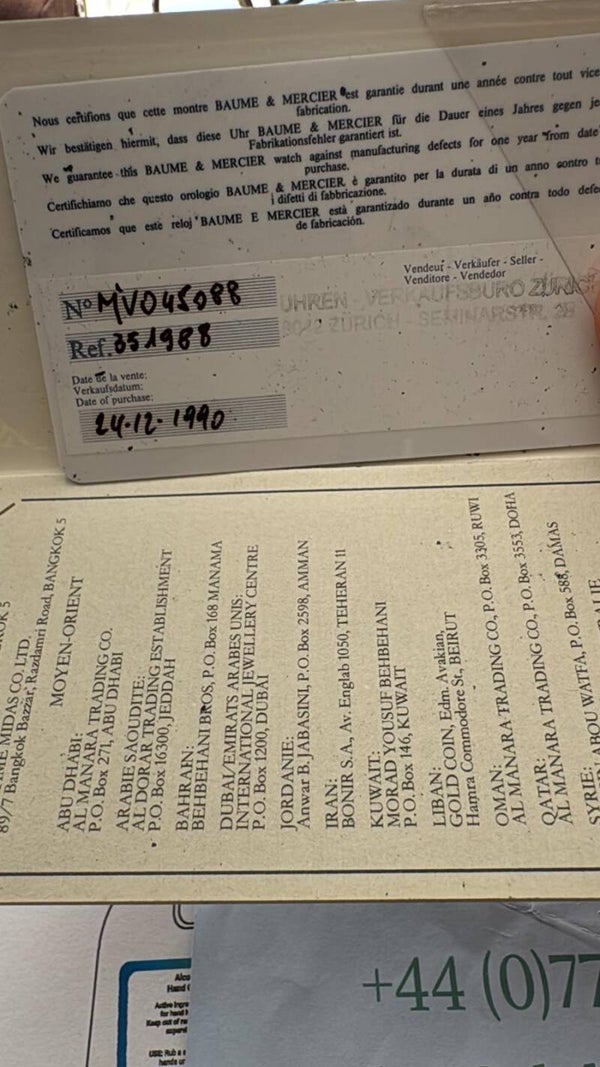 Nous certifions que cette montre BAUME & MERCIER est garantie durant une année contre tout vice
fabrication.
Wir bestätigen hiermit, dass diese Uhr BAUME & MERCIER für die Dauer eines Jahres gegen
Fabrikationsfehler garantiert ist.
We guarantee this BAUME & MERCIER watch against manufacturing defects for one year from date
purchase.
Certifichiamo che questo orologio BAUME & MERCIER è garantito per la durata di un anno contro
i difetti di fabbricazione.
Certificamos que este reloj BAUME E MERCIER está garantizado durante un año contra todo
de fabricación.
Vendeur - Verkäufer - Seller -
Venditore - Vendedor
UHREN - VERKAUFSBURO ZÜRICH
ZÜRICH - SEMINARSTR. 28
Nº MV045088
Ref. 351988
Date de la vente:
Verkaufsdatum:
Date of purchase:
24.12.1990
MIDAS CO. LTD.
89/7 Bangkok Bazzar, Razdamri Road, BANGKOK 5
MOYEN-ORIENT
ABU DHABI:
AL MANARA TRADING CO.
P.O. Box 271, ABU DHABI
ARABIE SAOUDITE:
AL DORAR TRADING ESTABLISHMENT
P.O. Box 16300, JEDDAH
BAHRAIN:
BEHBEHANI BROS, P.O. Box 168 MANAMA
DUBAI/EMIRATS ARABES UNIS:
INTERNATIONAL JEWELLERY CENTRE
P.O. Box 1200, DUBAI
JORDANIE:
Anwar B. JABASINI, P.O. Box 2598, AMMAN
IRAN:
BONIR S.A., Av. Englab 1050, TEHERAN 11
KUWAIT:
MORAD YOUSUF BEHBEHANI
P.O. Box 146, KUWAIT
LIBAN:
GOLD COIN, Edm. Avakian,
Hamra Commodore St., BEIRUT
OMAN:
AL MANARA TRADING CO., P.O. Box 3305, RUWI
QATAR:
AL MANARA TRADING CO., P.O. Box 3553, DOHA
SYRIE:
ABOU WATFA, P.O. Box 588, DAMAS
+44 (0)77